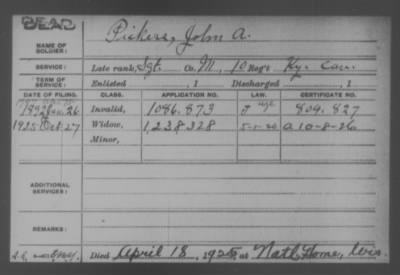 DEAD
NAME OF SOLDIER: Pickers, John A.
SERVICE: Late rank, Sgt. Co. M, 10 Reg't Ky. Cav.
TERM OF SERVICE: Enlisted , 1 Discharged , 1
DATE OF FILING. CLASS. APPLICATION NO. LAW. CERTIFICATE NO.
1892 Jan. 26 Invalid, 1086.873 804.827
1925 Oct. 27 Widow, 1,238,328 A 10-8-26
Minor,
ADDITIONAL SERVICES:
REMARKS:
Died April 18, 1925, at Nat'l Home, Wis.